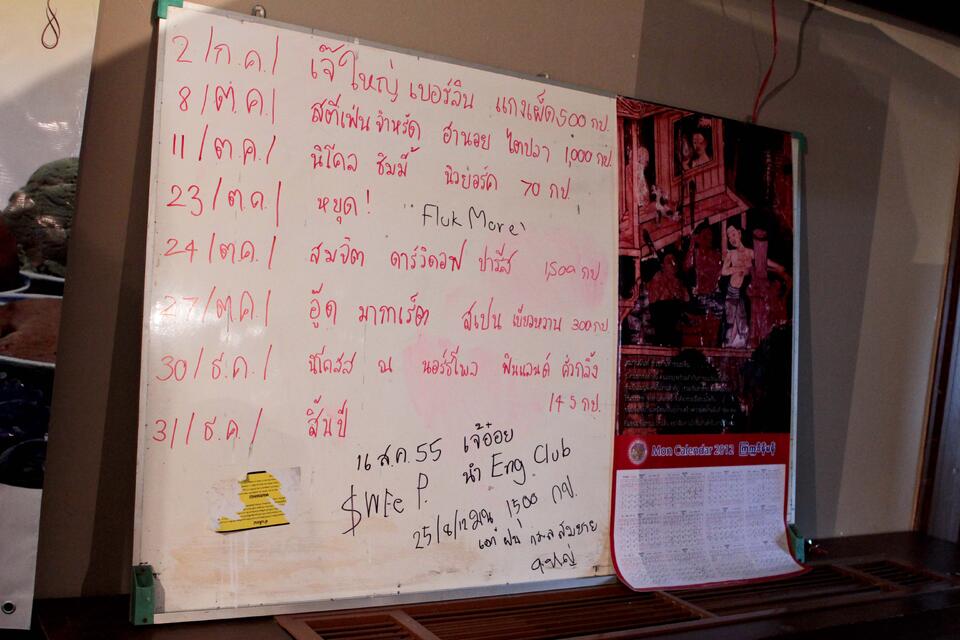 2 /ก.ค./ เจ๊ใหญ่ เบอร์ลิน แกงเผ็ด 500 กป.
8 /ต.ค./ สตีเฟ่น จำหรัด ฮานอย ไตปลา 1,000 กป.
11 /ต.ค./ นิโคล ซิมมี้ นิวย์อร์ค 70 กป.
23 /ต.ค./ หยุด!
"Fluk More"
24 /ต.ค./ สมจิต ดาร์วิดอฟ ปารีส 1,500 กป.
27/ต.ค./ อู๊ด มากาเร็ต สเปน เขียวหวาน 300 กป.
30/ธ.ค./ นิโคสส ณ นอร์ธโพล ฟินแลนด์ คั่วกลิ้ง
145 กป.
31/ธ.ค/ สิ้นปี
16 ส.ค. 55 เจ๊อ๋อย
$WEe P. นำ Eng. Club
25/8/12 1500 กป.
Mon Calendar 2012